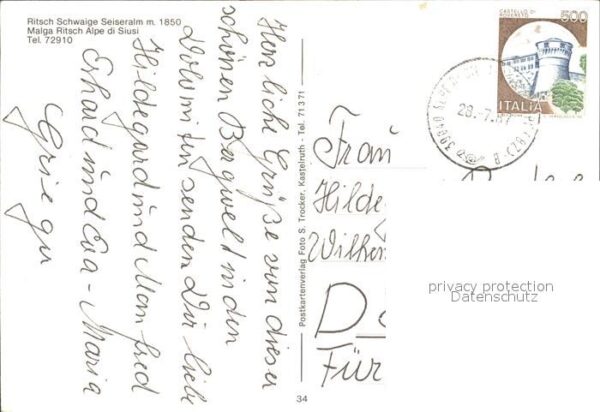 Ritsch Schwaige Seiseralm m. 1850
Malga Ritsch Alpe di Siusi
Tel. 72910
Herzliche Grüße von dieser
schönen Bergwelt in den
Dolomiten senden Dir liebe
Hildegard und Manfred
Erhard und Eva-Maria
Postkartenverlag Foto S. Trocker, Kastelruth - Tel. 71371
34
CASTELLO DI
ROVERETO
500
ITALIA
39040
28.-7.
Frau
Hilde
Wilhe
D
Für
privacy protection
Datenschutz